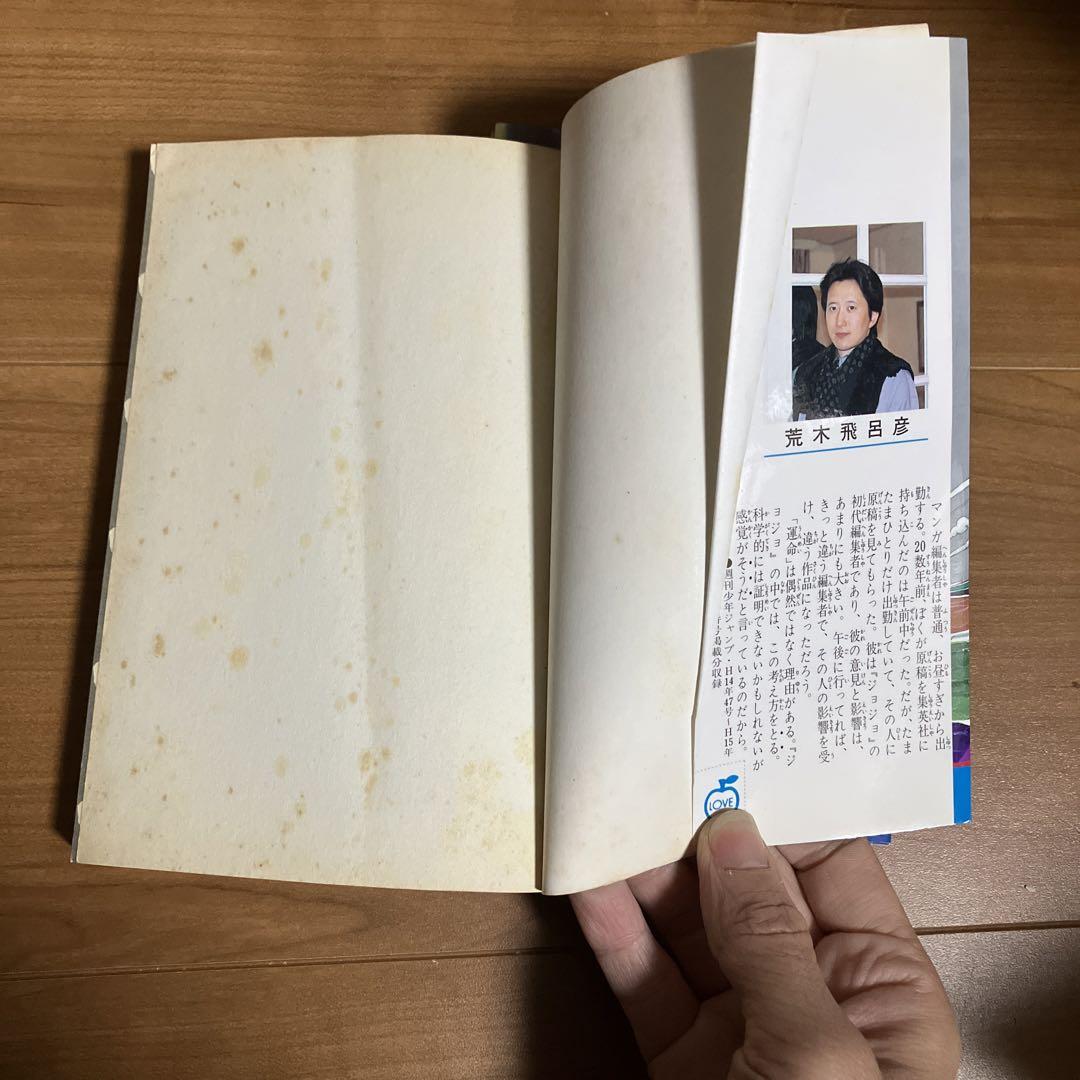 荒木飛呂彦
マンガ編集者は普通、お昼すぎから出
勤する。20数年前、ぼくが原稿を集英社に
持ち込んだのは午前中だった。だが、たま
たまひとりだけ出勤していて、その人に
原稿を見てもらった。彼は『ジョジョ』の
初代編集者であり、彼の意見と影響は、
あまりにも大きい。午後に行ってれば、
きっと違う編集者で、その人の影響を受
け、違う作品になっただろう。
「運命」は偶然ではなく理由がある。『ジ
ョジョ』の中では、この考え方をとる。
科学的には証明できないかもしれないが
感覚がそうだと言っているのだから。
●週刊少年ジャンプ・H14年47号〜H15年
号掲載分収録
LOVE